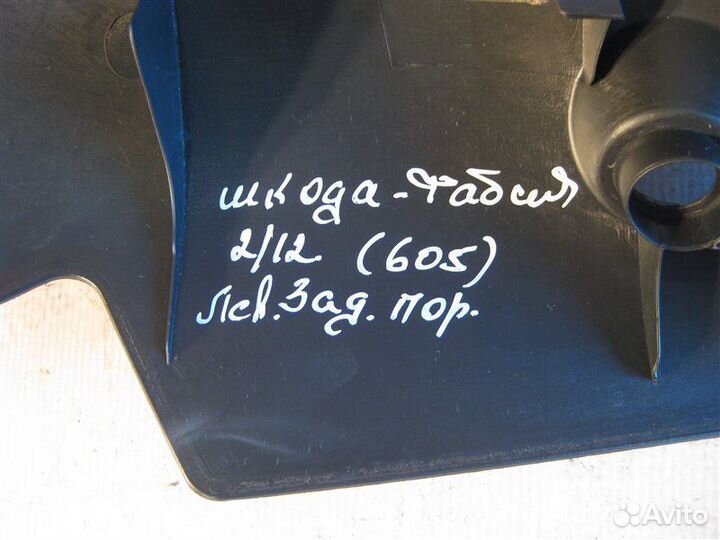 шкода-Фабия
2/12 (605)
Лев. Зад. пор.
Avito